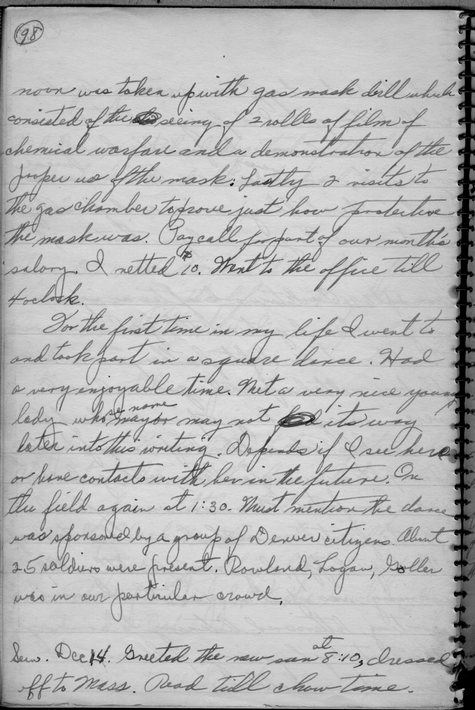 98
noon was taken up with gas mask drill which
consisted of the seeing of 2 rolles of film of
chemical warfare and a demonstration of the
proper us of the mask. Lastly 2 visits to
the gas chamber to prove just how protective
the mask was. Pay call for part of our month's
salary. I netted $10. Went to the office till
4 oclock.
For the first time in my life I went to
and took part in a square dance. Had
a very enjoyable time. Met a very nice young
lady whose name may or may not its way
later into this writing. Depends if I see her
or have contacts with her in the future. On
the field again at 1:30. Must mention the dance
was sponsored by a group of Denver citizens. About
25 soldiers were present. Rowland, Logan, Goller
was in our particular crowd.
Sun. Dec 14. Greeted the new sun at 8:10, dressed
off to Mass. Read till chow time.